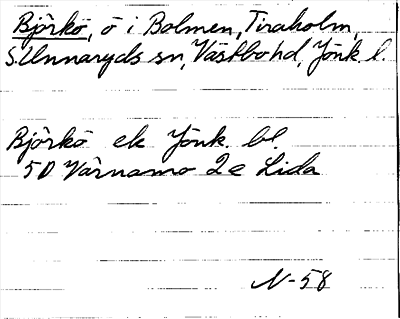 Björkö, ö i Bolmen, Tiraholm,
S.Unnaryds sn, Västbo hd, Jönk. l.
Björkö ek Jönk. bl.
5D Värnamo 2e Lida
N-58